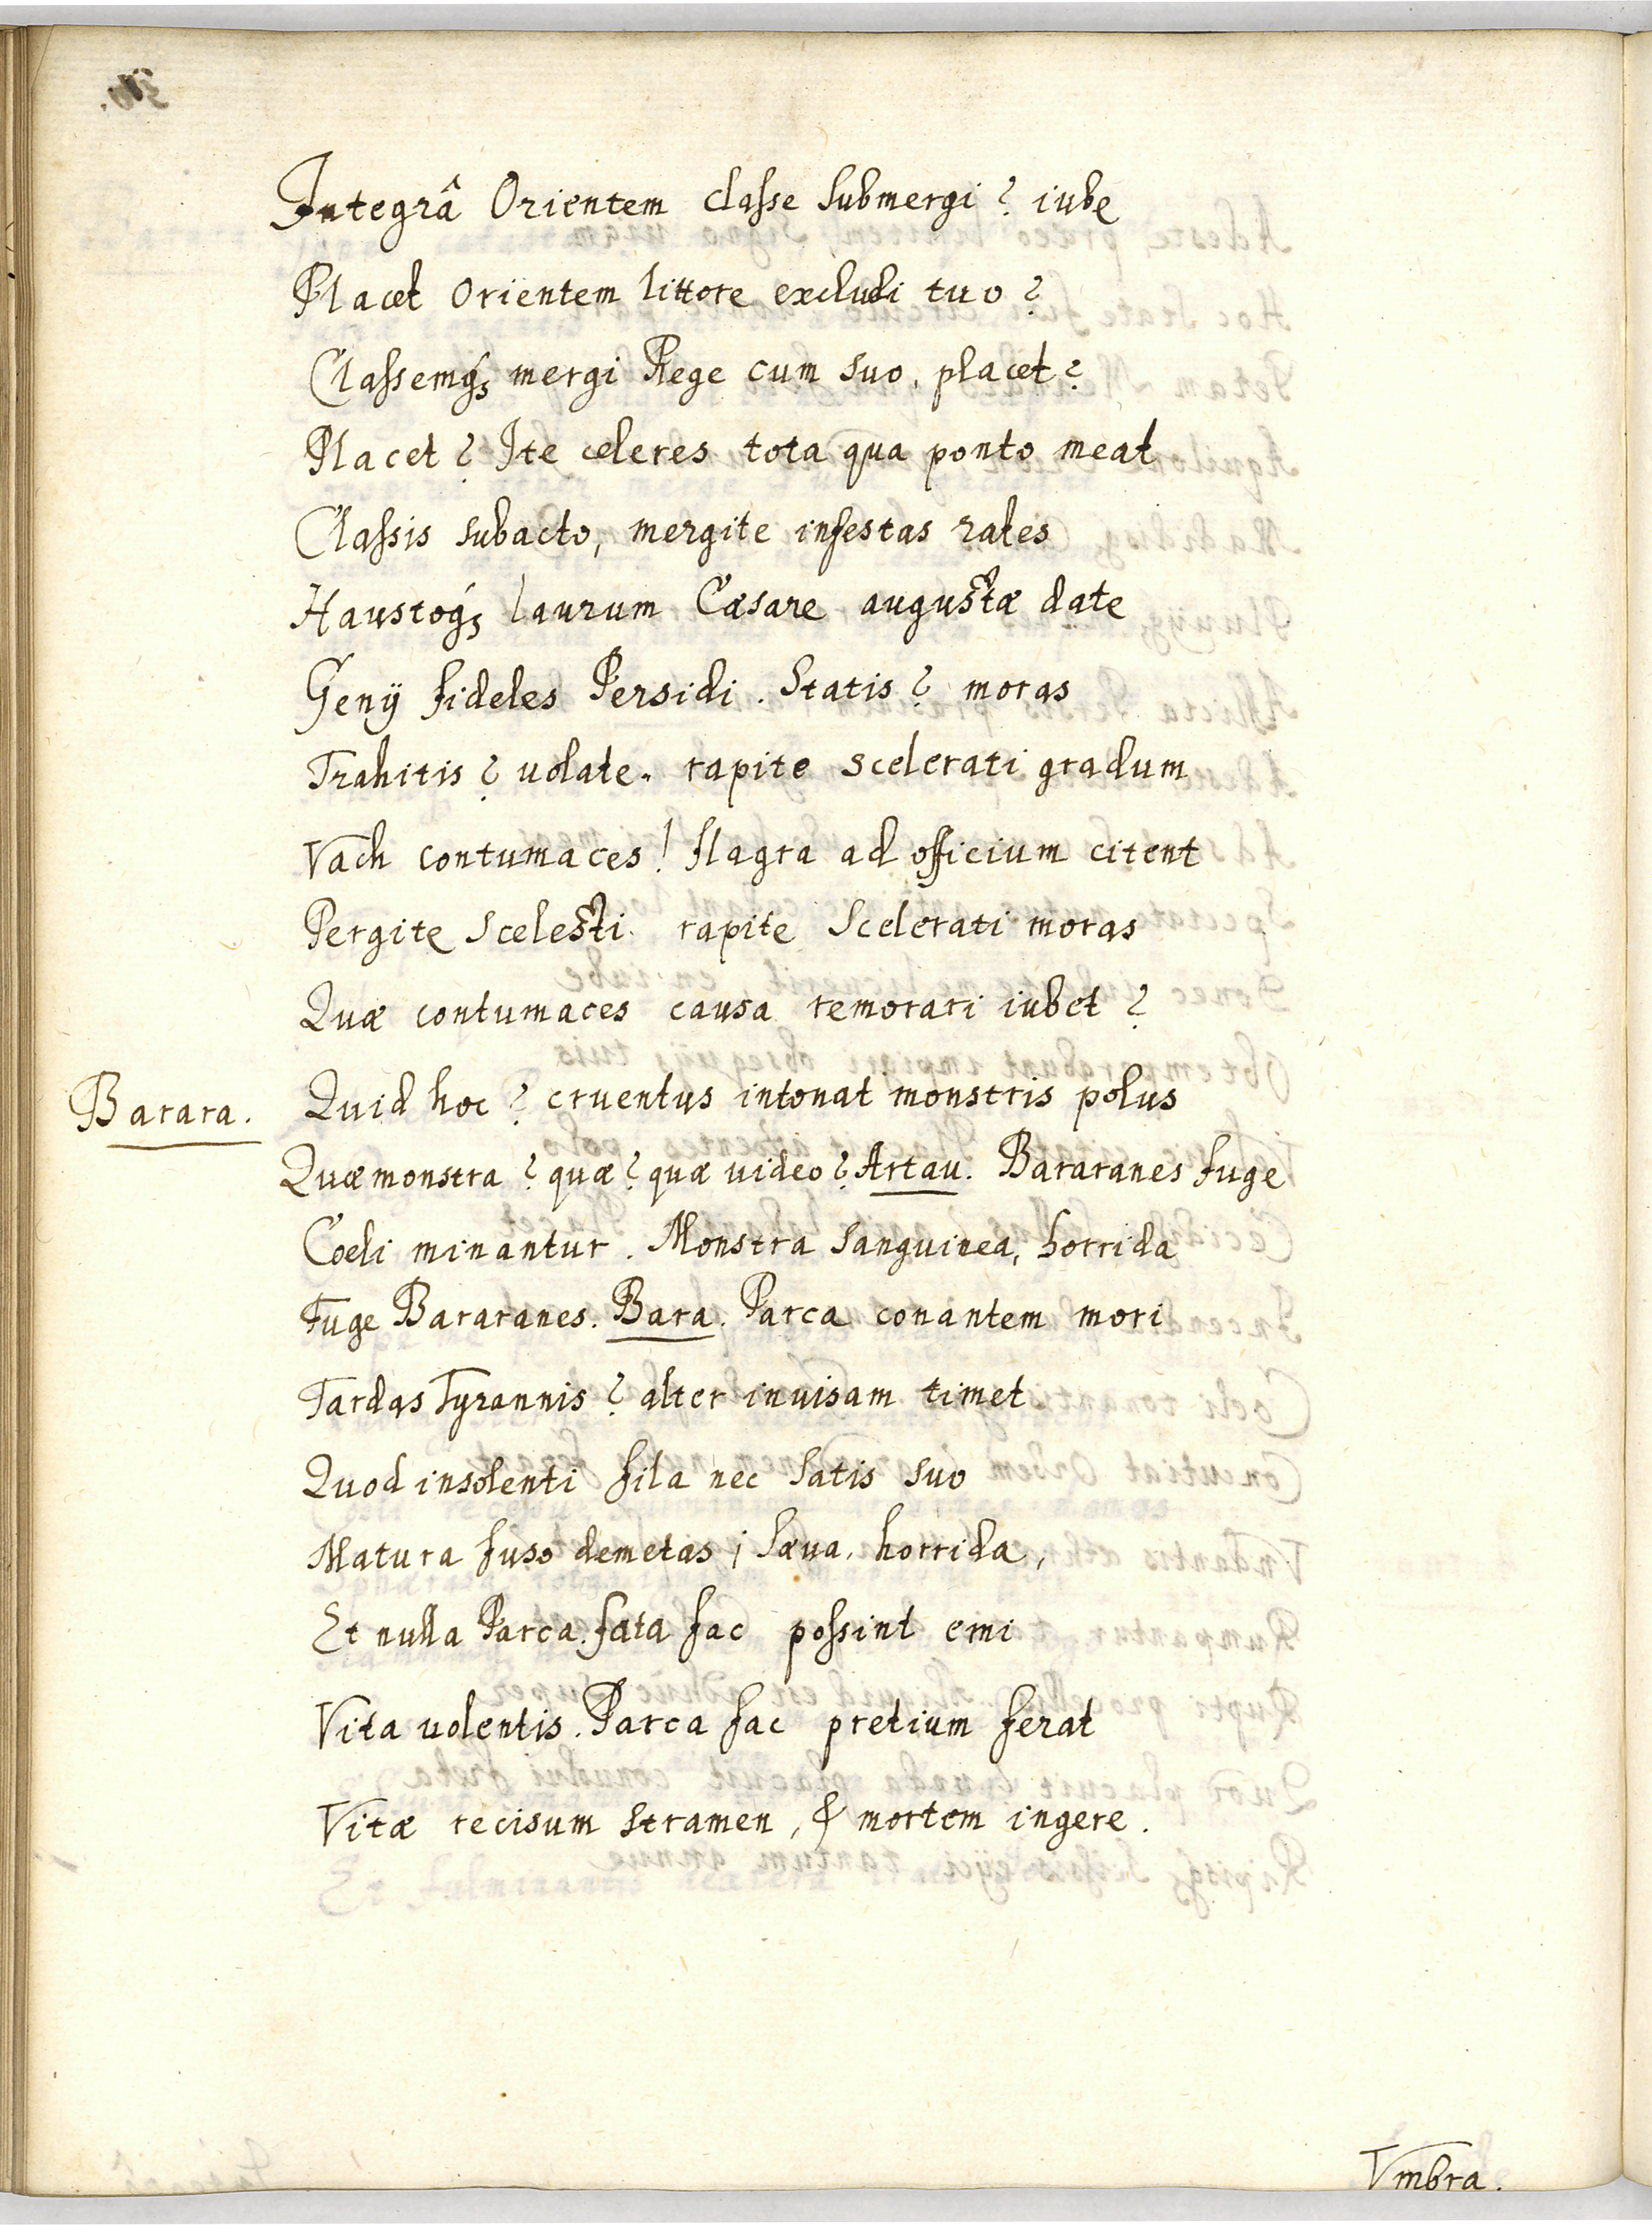 Integrâ Orientem classe submergi? iube
Placet Orientem littore excludi tuo?
Classemq́ꝫ mergi Rege cum suo, placet?
Placet? Ite celeres tota qua ponto meat
Classis subacto, mergite infestas rates
Haustoq́ꝫ laurum Cæsare augustæ date
Genÿ fideles Persidi. Statis? moras
Trahitis? uolate. rapite scelerati gradum
Vach contumaces! flagra ad officium citent
Pergite scelesti. rapite scelerati moras
Quæ contumaces causa remorari iubet?
Barara. Quid hoc? cruentus intonat monstris polus
Quæ monstra? quæ? quæ uideo? Artau. Bararanes fuge
Coeli minantur. Monstra sanguinea, horrida
Fuge Bararanes. Bara. Parca conantem mori
Tardas Tyrannis? alter inuisam timet
Quod insolenti fila nec satis suo
Matura fuso demetas; sæua, horrida,
Et nulla Parca. fata fac possint emi
Vita uolentis. Parca fac pretium ferat
Vitæ recisum stramen, & mortem ingere.
Vmbra.